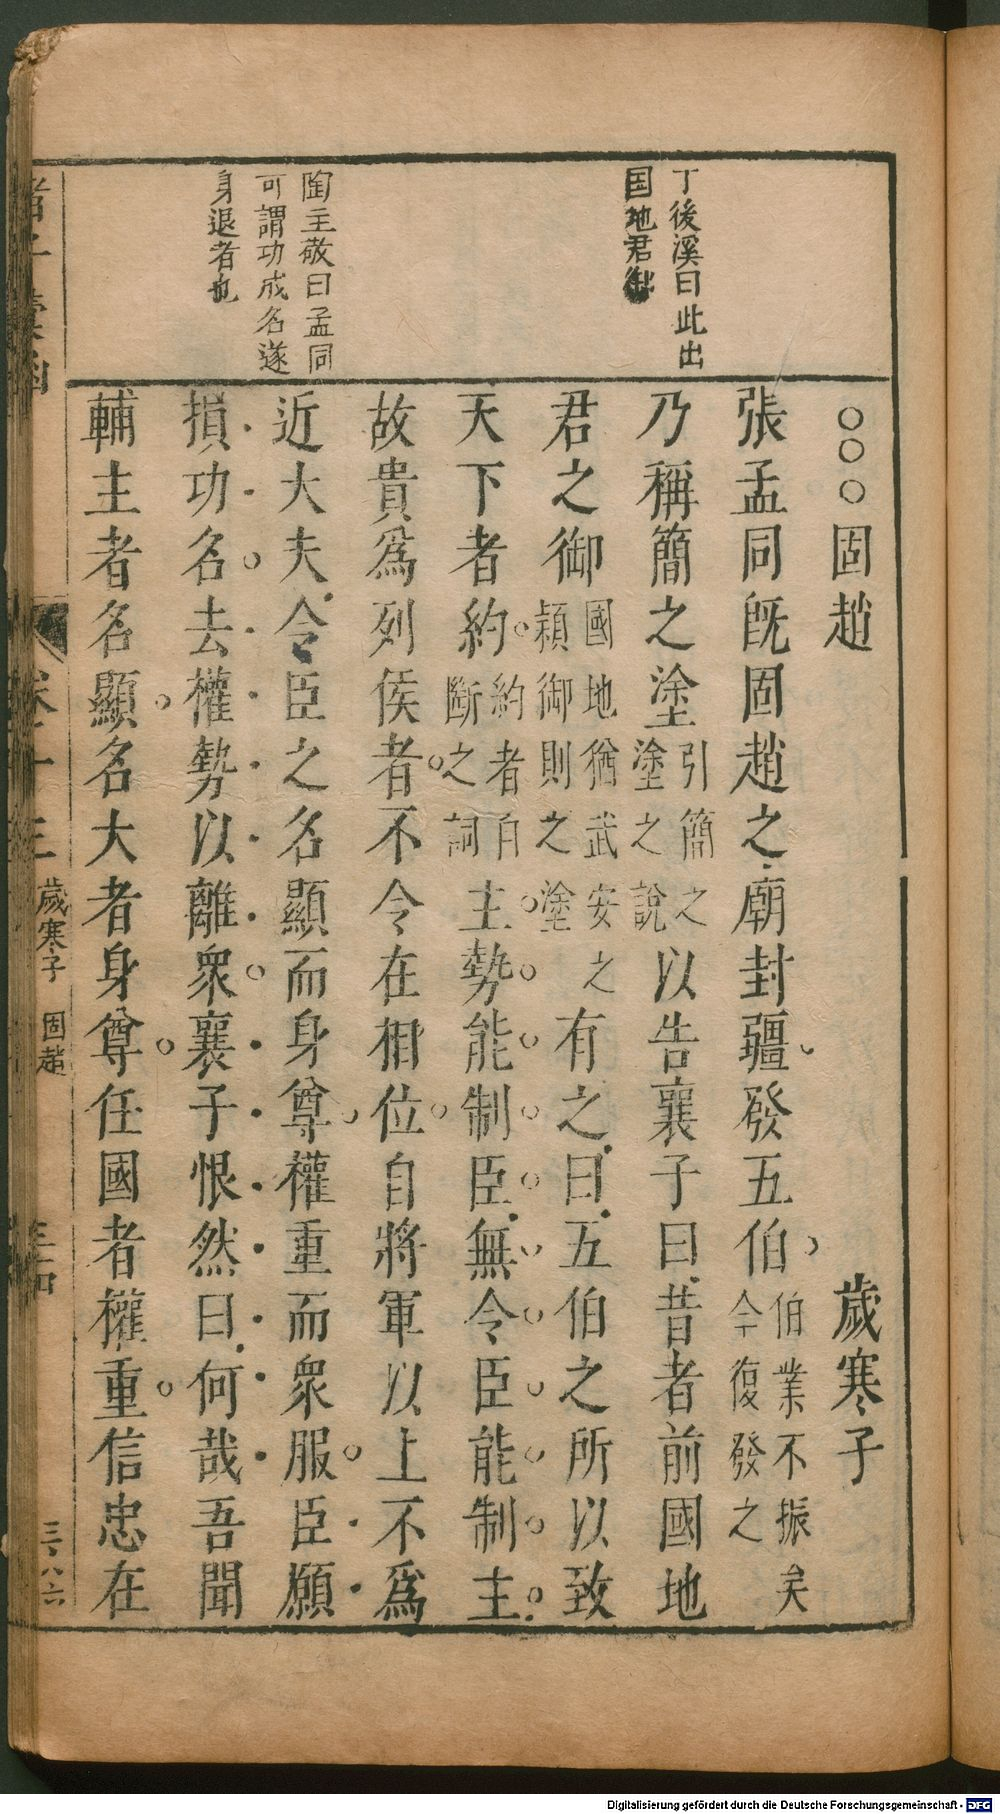 丁後溪曰此出
国地君御
陶主敬曰孟同
可謂功成名遂
身退者也
○○○固趙 歲寒子
張孟同旣固趙之廟封疆發五伯伯業不振矣今復發之
乃稱簡之塗引簡之塗之說以告襄子曰昔者前國地
君之御國地猶武安之穎御則之塗有之曰五伯之所以致
天下者約約者自斷之詞主勢能制臣無令臣能制主
故貴爲列侯者不令在相位自將軍以上不爲
近大夫令臣之名顯而身尊權重而衆服臣願
損功名去權勢以離衆襄子恨然曰何哉吾聞
輔主者名顯名大者身尊任國者權重信忠在
卷十三 歲寒子 固趙 三八六
Digitalisierung gefördert durch die Deutsche Forschungsgemeinschaft - DFG